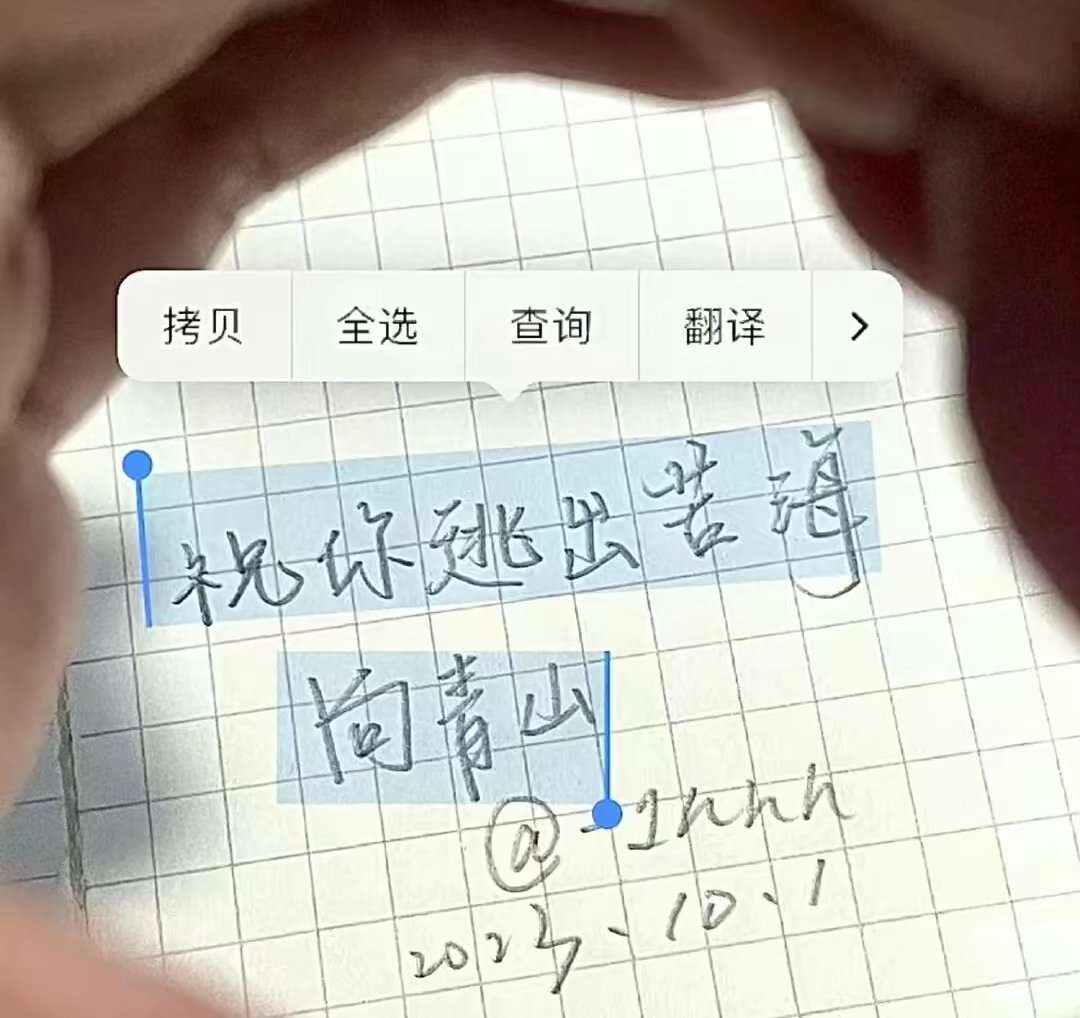 拷贝 全选 查询 翻译 >
祝你逃出苦海
向青山
@-1nnn
2023.10.1